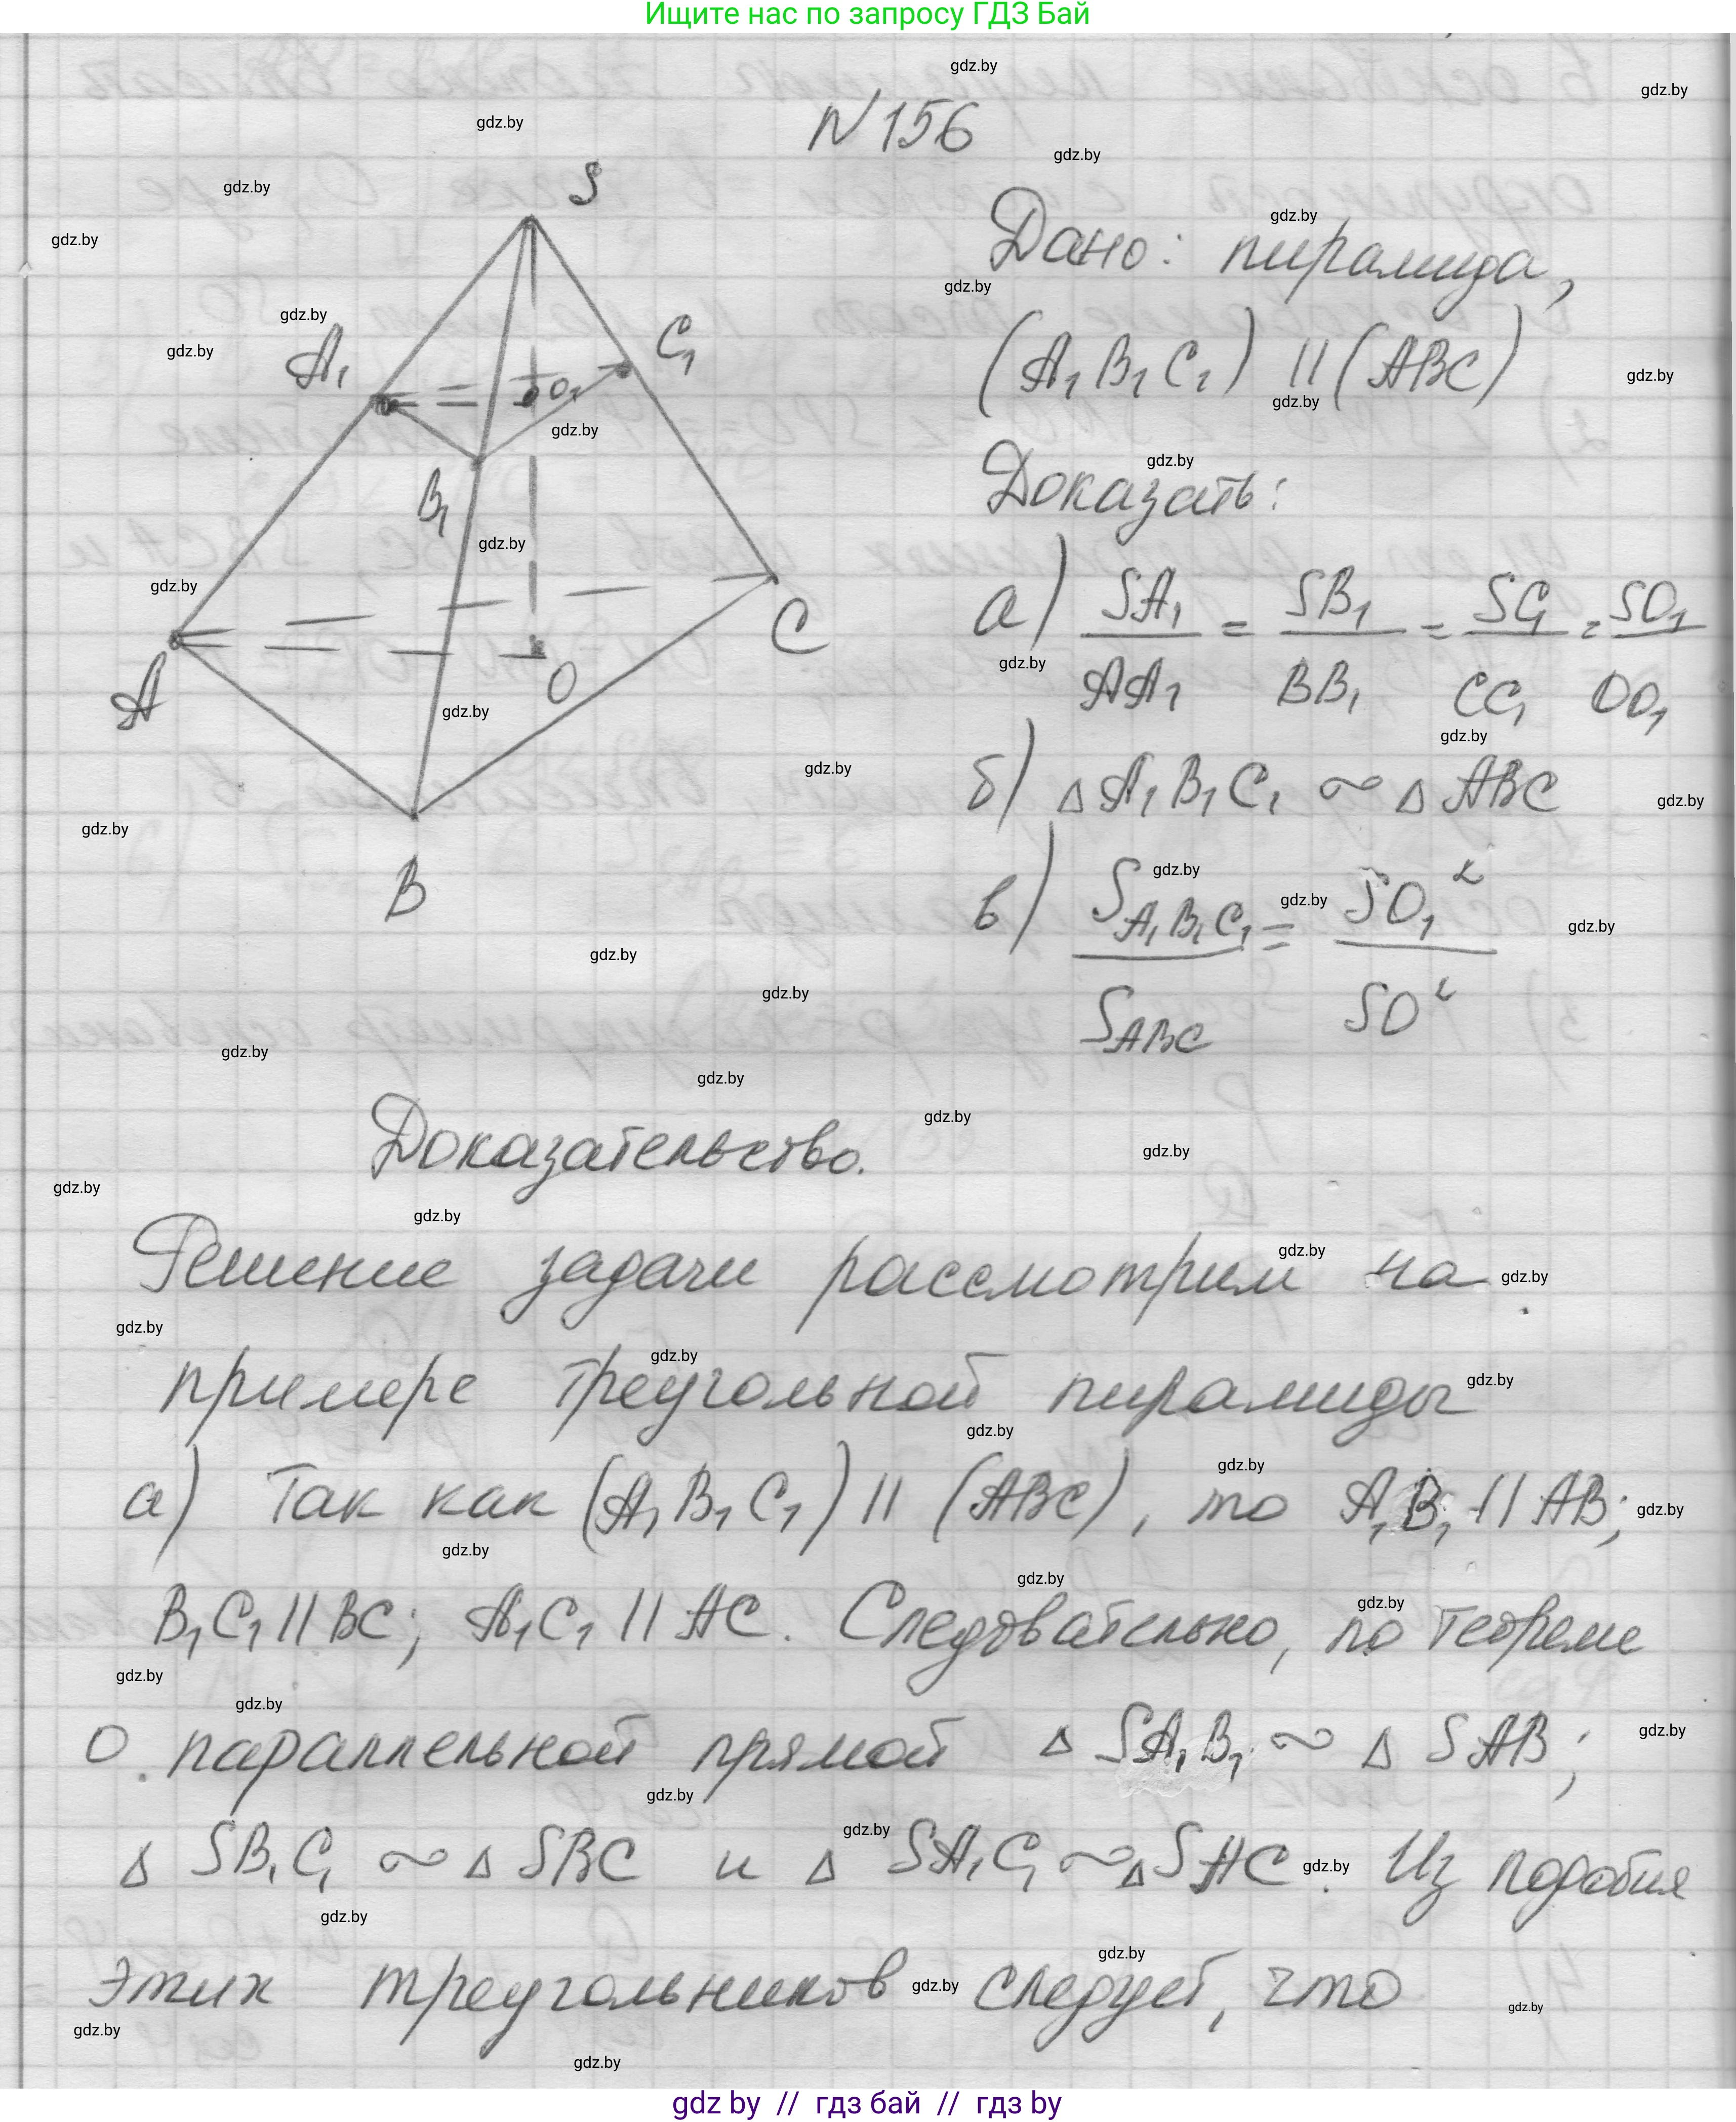 Ищите нас по запросу ГДЗ Бай
N156
S
A₁
C₁
O₁
B₁
A
C
O
B
Дано: пирамида,
(A₁B₁C₁) || (ABC)
Доказать:
а) SA₁/AA₁ = SB₁/BB₁ = SC₁/CC₁ = SO₁/OO₁
б) △A₁B₁C₁ ∾ △ABC
в) S_A₁B₁C₁/S_ABC = SO₁²/SO²
Доказательство.
Решение задачи рассмотрим на
примере треугольной пирамиды
а) Так как (A₁B₁C₁) || (ABC), то A₁B₁ || AB;
B₁C₁ || BC; A₁C₁ || AC. Следовательно, по теореме
о параллельной прямой △ SA₁B₁ ∾ △ SAB;
△ SB₁C₁ ∾ △ SBC и △ SA₁C₁ ∾ △ SAC. Из подобия
этих треугольников следует, что
gdz by // гдз бай // гдз by